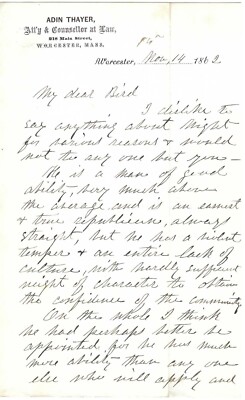 ADIN THAYER,
Att'y & Counsellor at Law,
Main Street,
WORCESTER, MASS.
Worcester, Nov, 14 186
My dear Bird
I dislike to
say anything about
for various reasons & would
not to any one but you—
He is a man of good
ability, very much above
the average and is an earnest
& true republican, always
straight, but he has a violent
temper & an entire lack of
culture, with hardly sufficient
weight of character to obtain
the confidence of the community
On the whole I think
he had perhaps better be
appointed for he has much
more ability than any one
else who will apply and